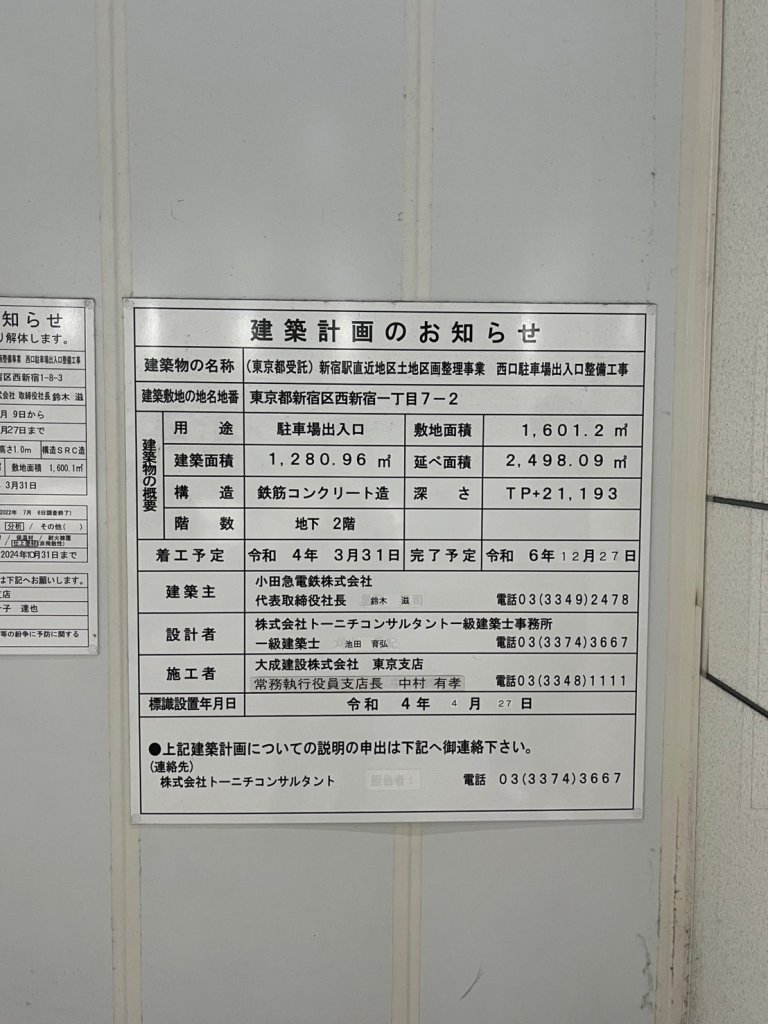 建築計画のお知らせ
建築物の名称 (東京都受託) 新宿駅直近地区土地区画整理事業 西口駐車場出入口整備工事
建築敷地の地名地番 東京都新宿区西新宿一丁目7-2
建築物の概要
用途 駐車場出入口 敷地面積 1,601.2 ㎡
建築面積 1,280.96 ㎡ 延べ面積 2,498.09 ㎡
構造 鉄筋コンクリート造 深さ TP+21,193
階数 地下 2階
着工予定 令和 4年 3月31日 完了予定 令和 6年12月27日
建築主 小田急電鉄株式会社
代表取締役社長 鈴木 滋 電話03(3349)2478
設計者 株式会社トーニチコンサルタント一級建築士事務所
一級建築士 池田 育弘 電話03(3374)3667
施工者 大成建設株式会社 東京支店
常務執行役員支店長 中村 有孝 電話03(3348)1111
標識設置年月日 令和 4年 4月 27日
●上記建築計画についての説明の申出は下記へ御連絡下さい。
(連絡先)
株式会社トーニチコンサルタント 担当者: 電話 03(3374)3667
知らせ
り解体します。
備事業 西口駐車場出入口整備工事
区西新宿1-8-3
会社 取締役社長 鈴木 滋
月 9日から
月27日まで
高さ1.0m 構造SRC造
敷地面積 1,600.1㎡
3月31日
2022年 7月 6日調査終了)
分析 / その他( )
/ 保温材 / 耐火被覆
/ 仕上塗材(非飛散性)
2024年10月31日まで
は下記へお願いします。
支店
子 達也
等の紛争に予防に関する